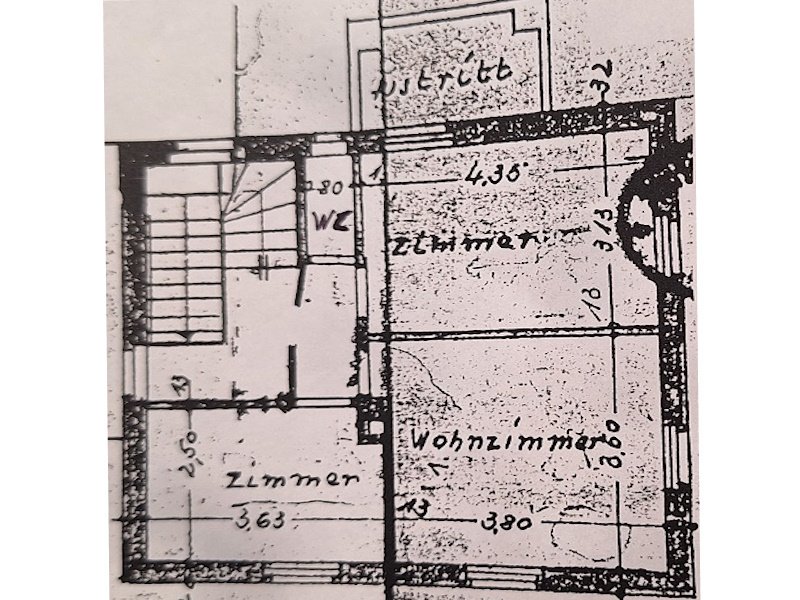 Austritt
32
80
1
4,35
WC
Zimmer
3 13
18
13
Wohnzimmer
2,50
Zimmer
3,60
1.
13
3,63
3,80